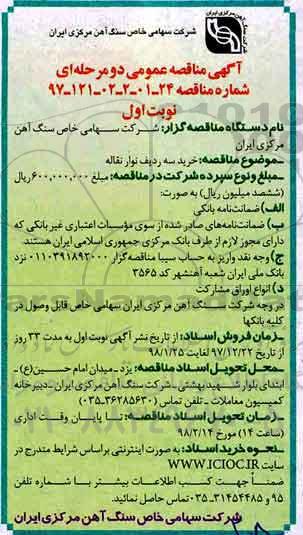 شرکت سهامی خاص سنگ آهن مرکزی ایران
آگهی مناقصه عمومی دو مرحله‌ای
شماره مناقصه ۲۴-۰۱-۲-۰۲-۱۲۱-۹۷
نوبت اول
نام دستگاه مناقصه گزار: شرکت سهامی خاص سنگ آهن
مرکزی ایران
-موضوع مناقصه: خرید سه ردیف نوار نقاله
-مبلغ و نوع سپرده شرکت در مناقصه: مبلغ ۶۰۰,۰۰۰,۰۰۰ ریال
(ششصد میلیون ریال) به صورت:
الف) ضمانت‌نامه بانکی
ب) ضمانت‌نامه‌های صادر شده از سوی مؤسسات اعتباری غیر بانکی که
دارای مجوز لازم از طرف بانک مرکزی جمهوری اسلامی ایران هستند.
ج) وجه نقد واریز به حساب سیبا مناقصه گزار ۰۱۱۰۳۹۱۸۹۲۰۰۰ نزد
بانک ملی ایران شعبه آهنشهر کد ۳۵۶۵
د) انواع اوراق مشارکت
در وجه شرکت سنگ آهن مرکزی ایران سهامی خاص قابل وصول در
کلیه بانکها
-زمان فروش اسناد: از تاریخ نشر آگهی نوبت اول به مدت ۳۳ روز
از تاریخ ۹۷/۱۲/۲۲ لغایت ۹۸/۱/۲۵
-محل تحویل اسناد مناقصه: یزد - میدان امام حسین(ع) -
ابتدای بلوار شهید بهشتی - شرکت سنگ آهن مرکزی ایران - دبیرخانه
کمیسیون معاملات - تلفن تماس (۳۶۲۸۵۶۳۰-۰۳۵)
-زمان تحویل اسناد مناقصه: تا پایان وقت اداری
(ساعت ۱۴) مورخ ۹۸/۲/۱۴
-نحوه خرید اسناد: به صورت اینترنتی براساس شرایط مندرج در
سایت WWW.ICIOC.IR
ضمناً جهت کسب اطلاعات بیشتر با شماره تلفن
۹۵ و ۳۱۴۵۴۴۸۵-۰۳۵ تماس حاصل نمائید.
شرکت سهامی خاص سنگ آهن مرکزی ایران